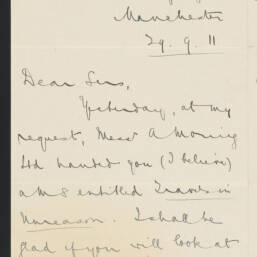 Manchester
29.9.11
Dear Sirs,
Yesterday, at my
request, Messrs A Moring
Ltd handed you (I believe)
a MS entitled in
Unreason. I shall be
glad if you will look at